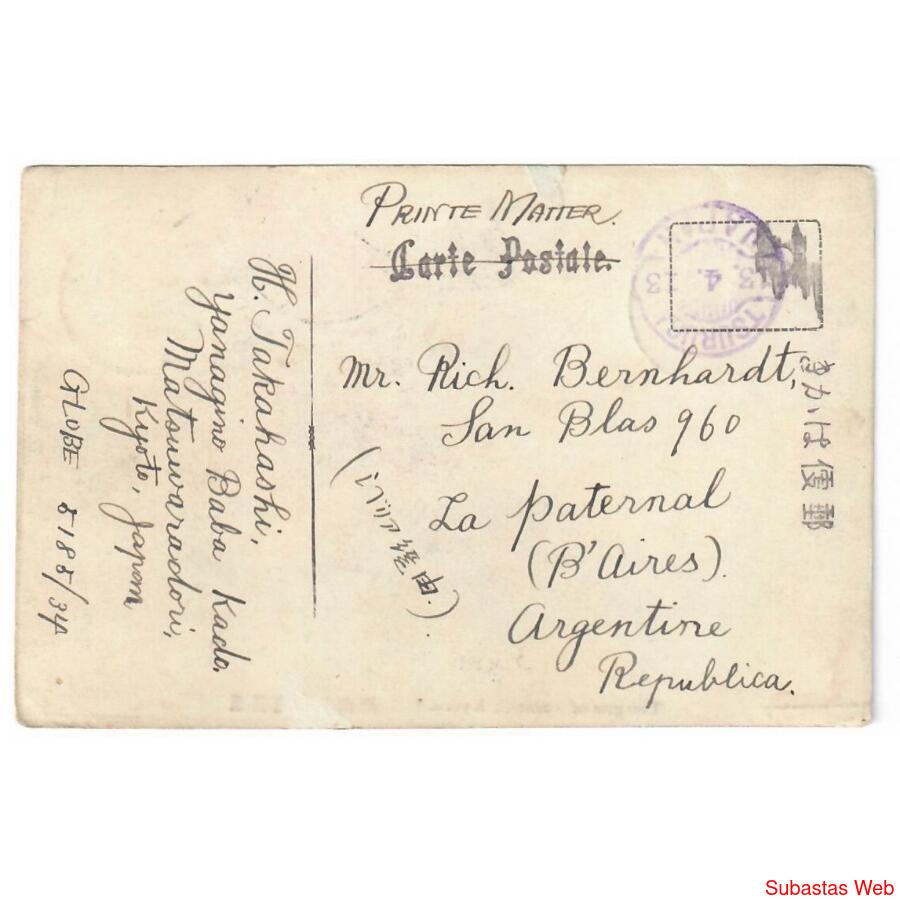 PRINTE MATTER.
Carte Postale.
Mr. Rich. Bernhardt,
San Blas 960
La Paternal
(B'Aires).
Argentine
Republica.
H. Takahashi,
Yanagino Baba Kado.
Matouwaradori,
Kyoto, Japan
GLOBE 5188/34
郵便はかき
TSURUGA
13. 4. 13
Subastas Web